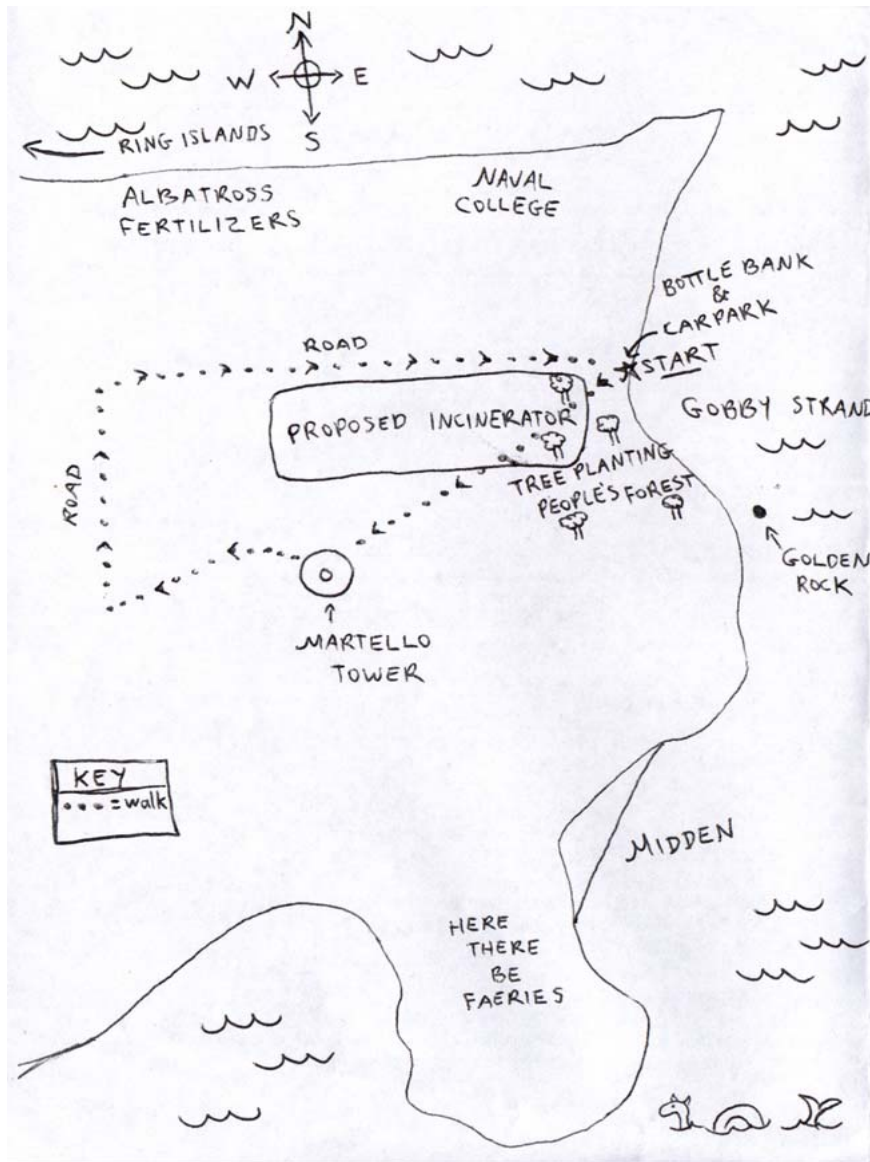 N
W E
S
RING ISLANDS
ALBATROSS
FERTILIZERS
NAVAL
COLLEGE
BOTTLE BANK
&
CARPARK
START
ROAD
GOBBY STRAND
PROPOSED INCINERATOR
TREE PLANTING
PEOPLE'S FOREST
ROAD
GOLDEN
ROCK
MARTELLO
TOWER
KEY
= walk
MIDDEN
HERE
THERE
BE
FAERIES